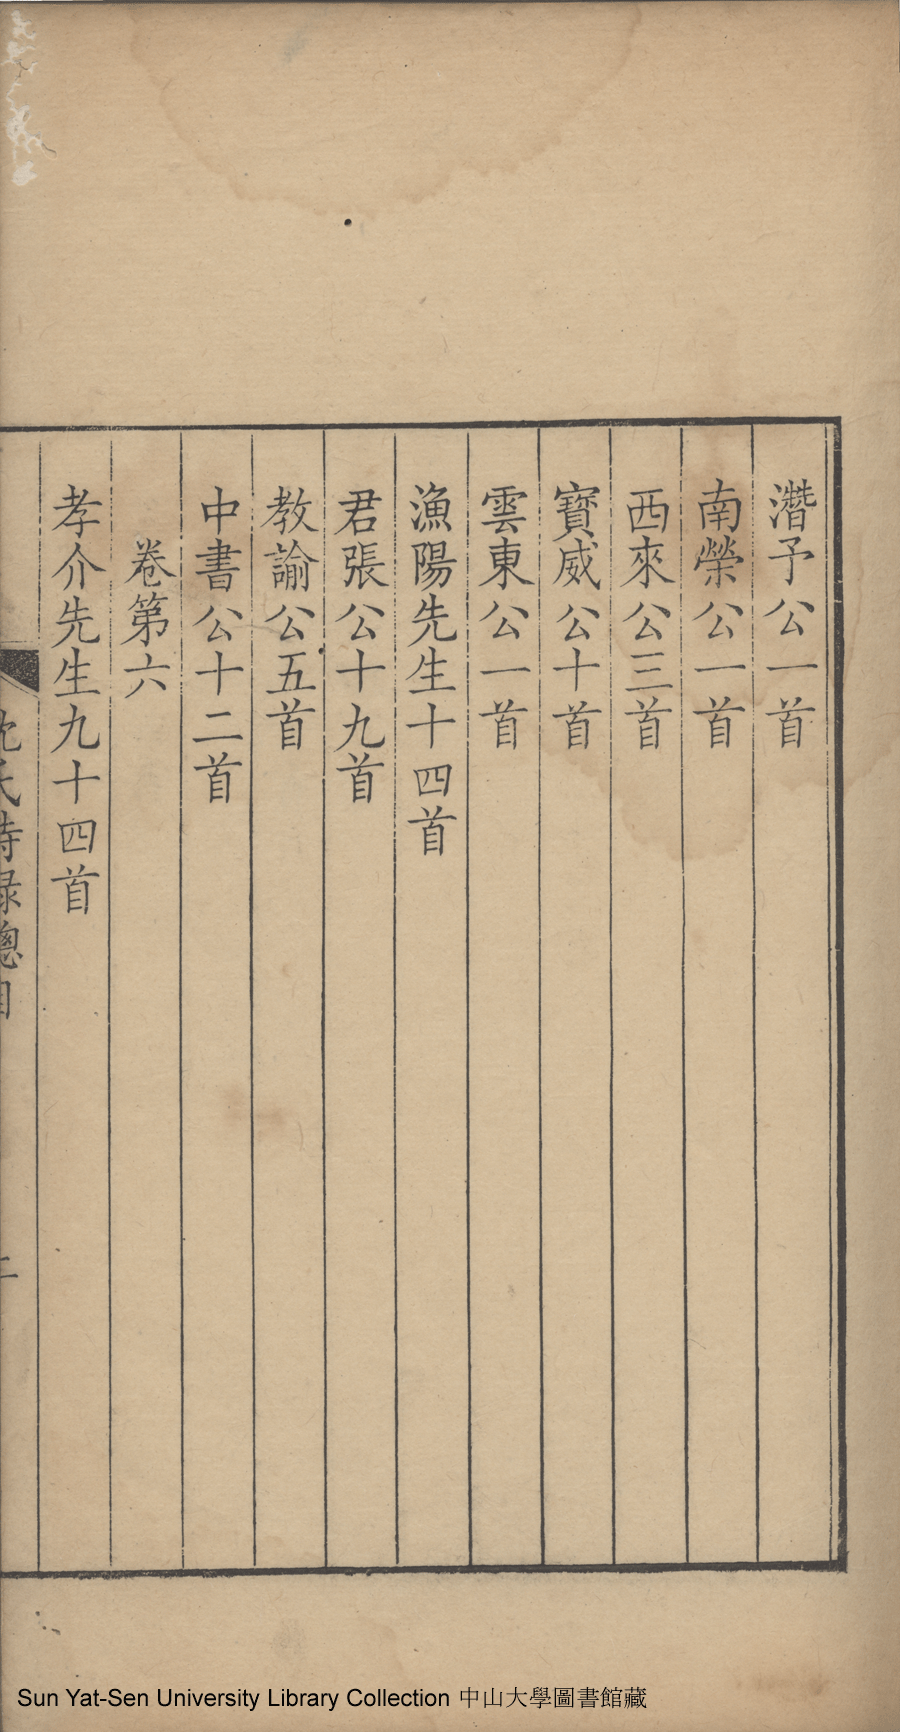 潛予公一首
南榮公一首
西來公三首
寶威公十首
雲東公一首
漁陽先生十四首
君張公十九首
教諭公五首
中書公十二首
卷第六
孝介先生九十四首
沈氏詩録總目
二
Sun Yat-Sen University Library Collection 中山大學圖書館藏